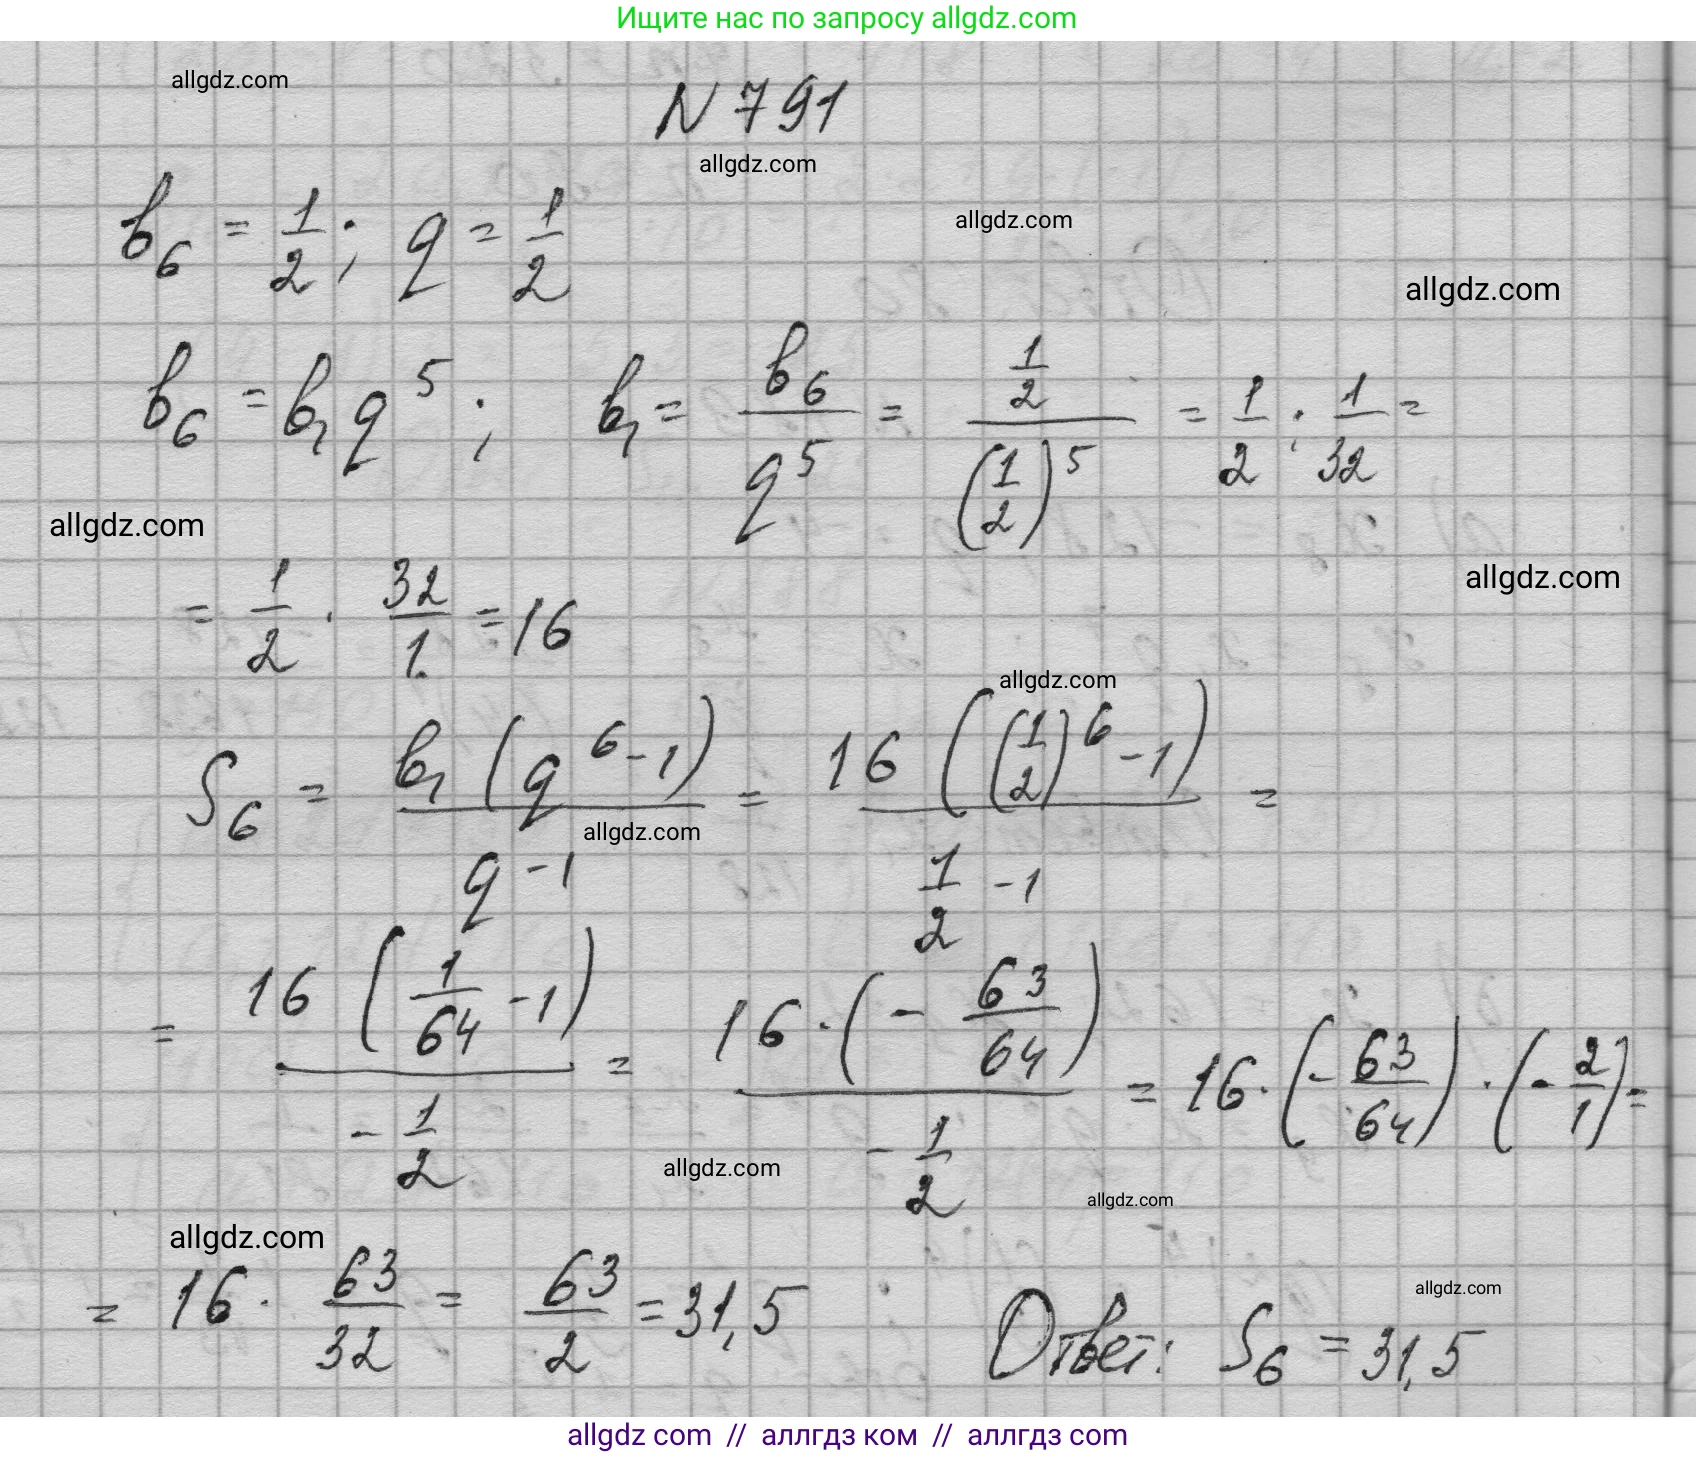 Ищите нас по запросу allgdz.com
allgdz.com
N 791
allgdz.com
b₆ = 1/2; q = 1/2
allgdz.com
allgdz.com
b₆ = b₁q⁵; b₁ = b₆/q⁵ = (1/2)/(1/2)⁵ = 1/2 : 1/32 =
allgdz.com
allgdz.com
= 1/2 · 32/1 = 16
allgdz.com
S₆ = b₁(q⁶-1)/(q-1) = 16((1/2)⁶-1)/(1/2-1) =
allgdz.com
= 16(1/64-1)/(-1/2) = 16·(-63/64)/(-1/2) = 16·(-63/64)·(-2/1) =
allgdz.com
allgdz.com
allgdz.com
= 16 · 63/32 = 63/2 = 31,5
allgdz.com
Ответ: S₆ = 31,5
allgdz com // аллгдз ком // аллгдз com